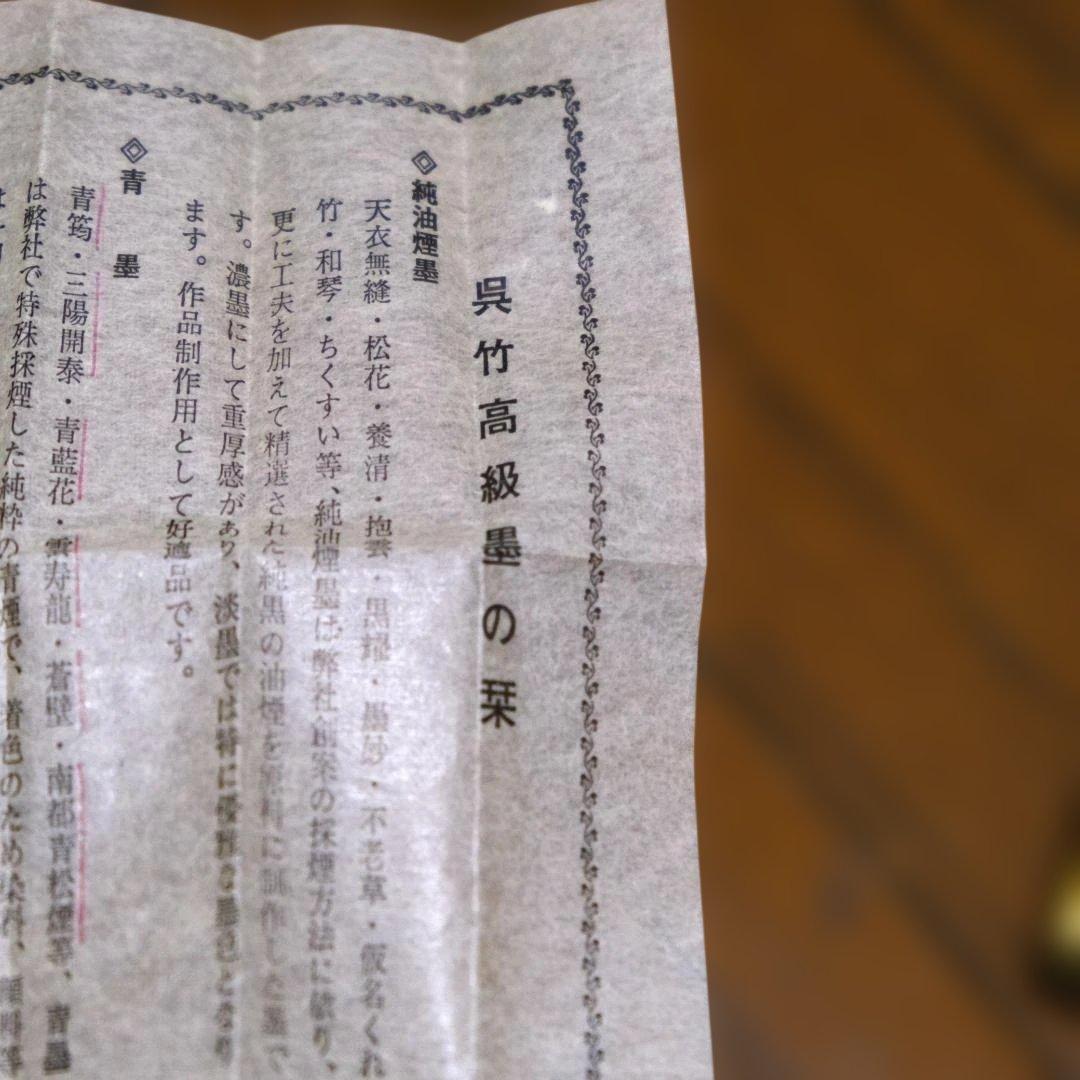 呉竹高級墨の栞
◇純油煙墨
天衣無縫・松花・養清・抱雲・黒耀・墨妙・不老草・仮名くれ
竹・和琴・ちくすい等、純油煙墨は弊社創案の採煙方法に依り、
更に工夫を加えて精選された純黒の油煙を原料に製作した墨で
す。濃墨にして重厚感があり、淡墨では特に優雅な墨色となり
ます。作品制作用として好適品です。
◇青墨
青筠・三陽開泰・青藍花・雲寿龍・蒼壁・南都青松煙等、青墨
は弊社で特殊採煙した純粋の青煙で、着色のため染料、顔料等